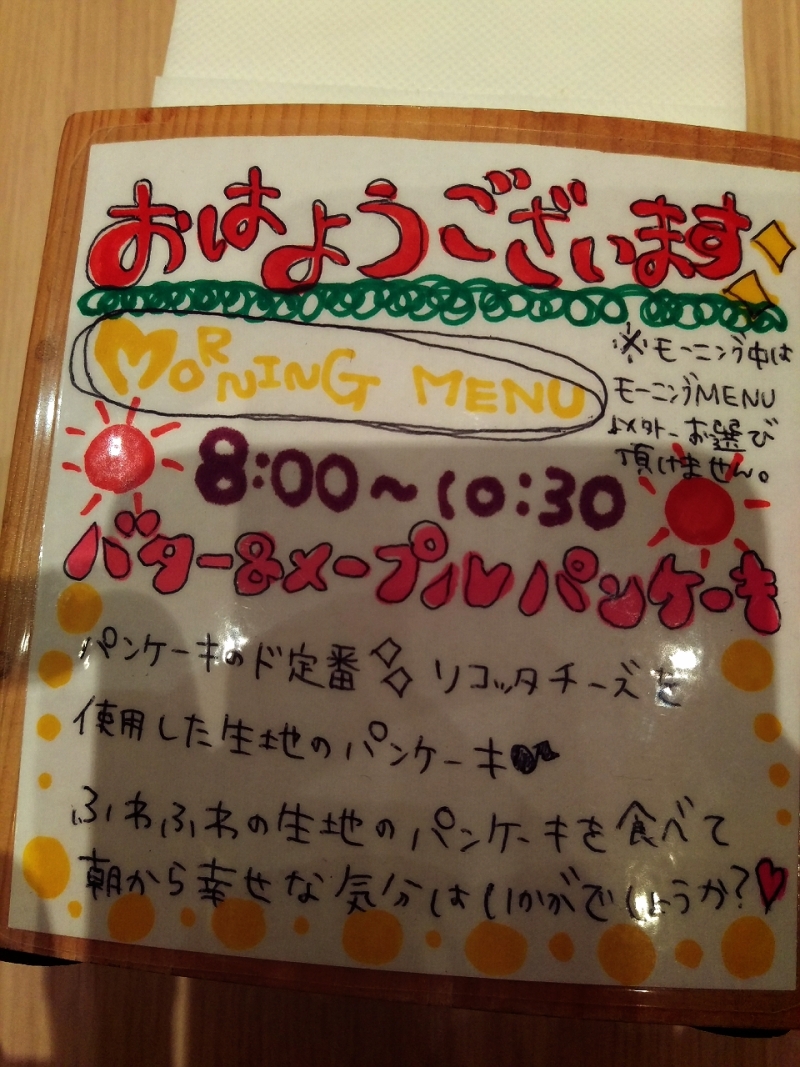 おはようございます
MORNING MENU
※モーニング中は
モーニングMENU
以外お選び
頂けません。
8:00~10:30
バター&メープルパンケーキ
パンケーキのド定番 リコッタチーズを
使用した生地のパンケーキ
ふわふわの生地のパンケーキを食べて
朝から幸せな気分はいかがでしょうか?